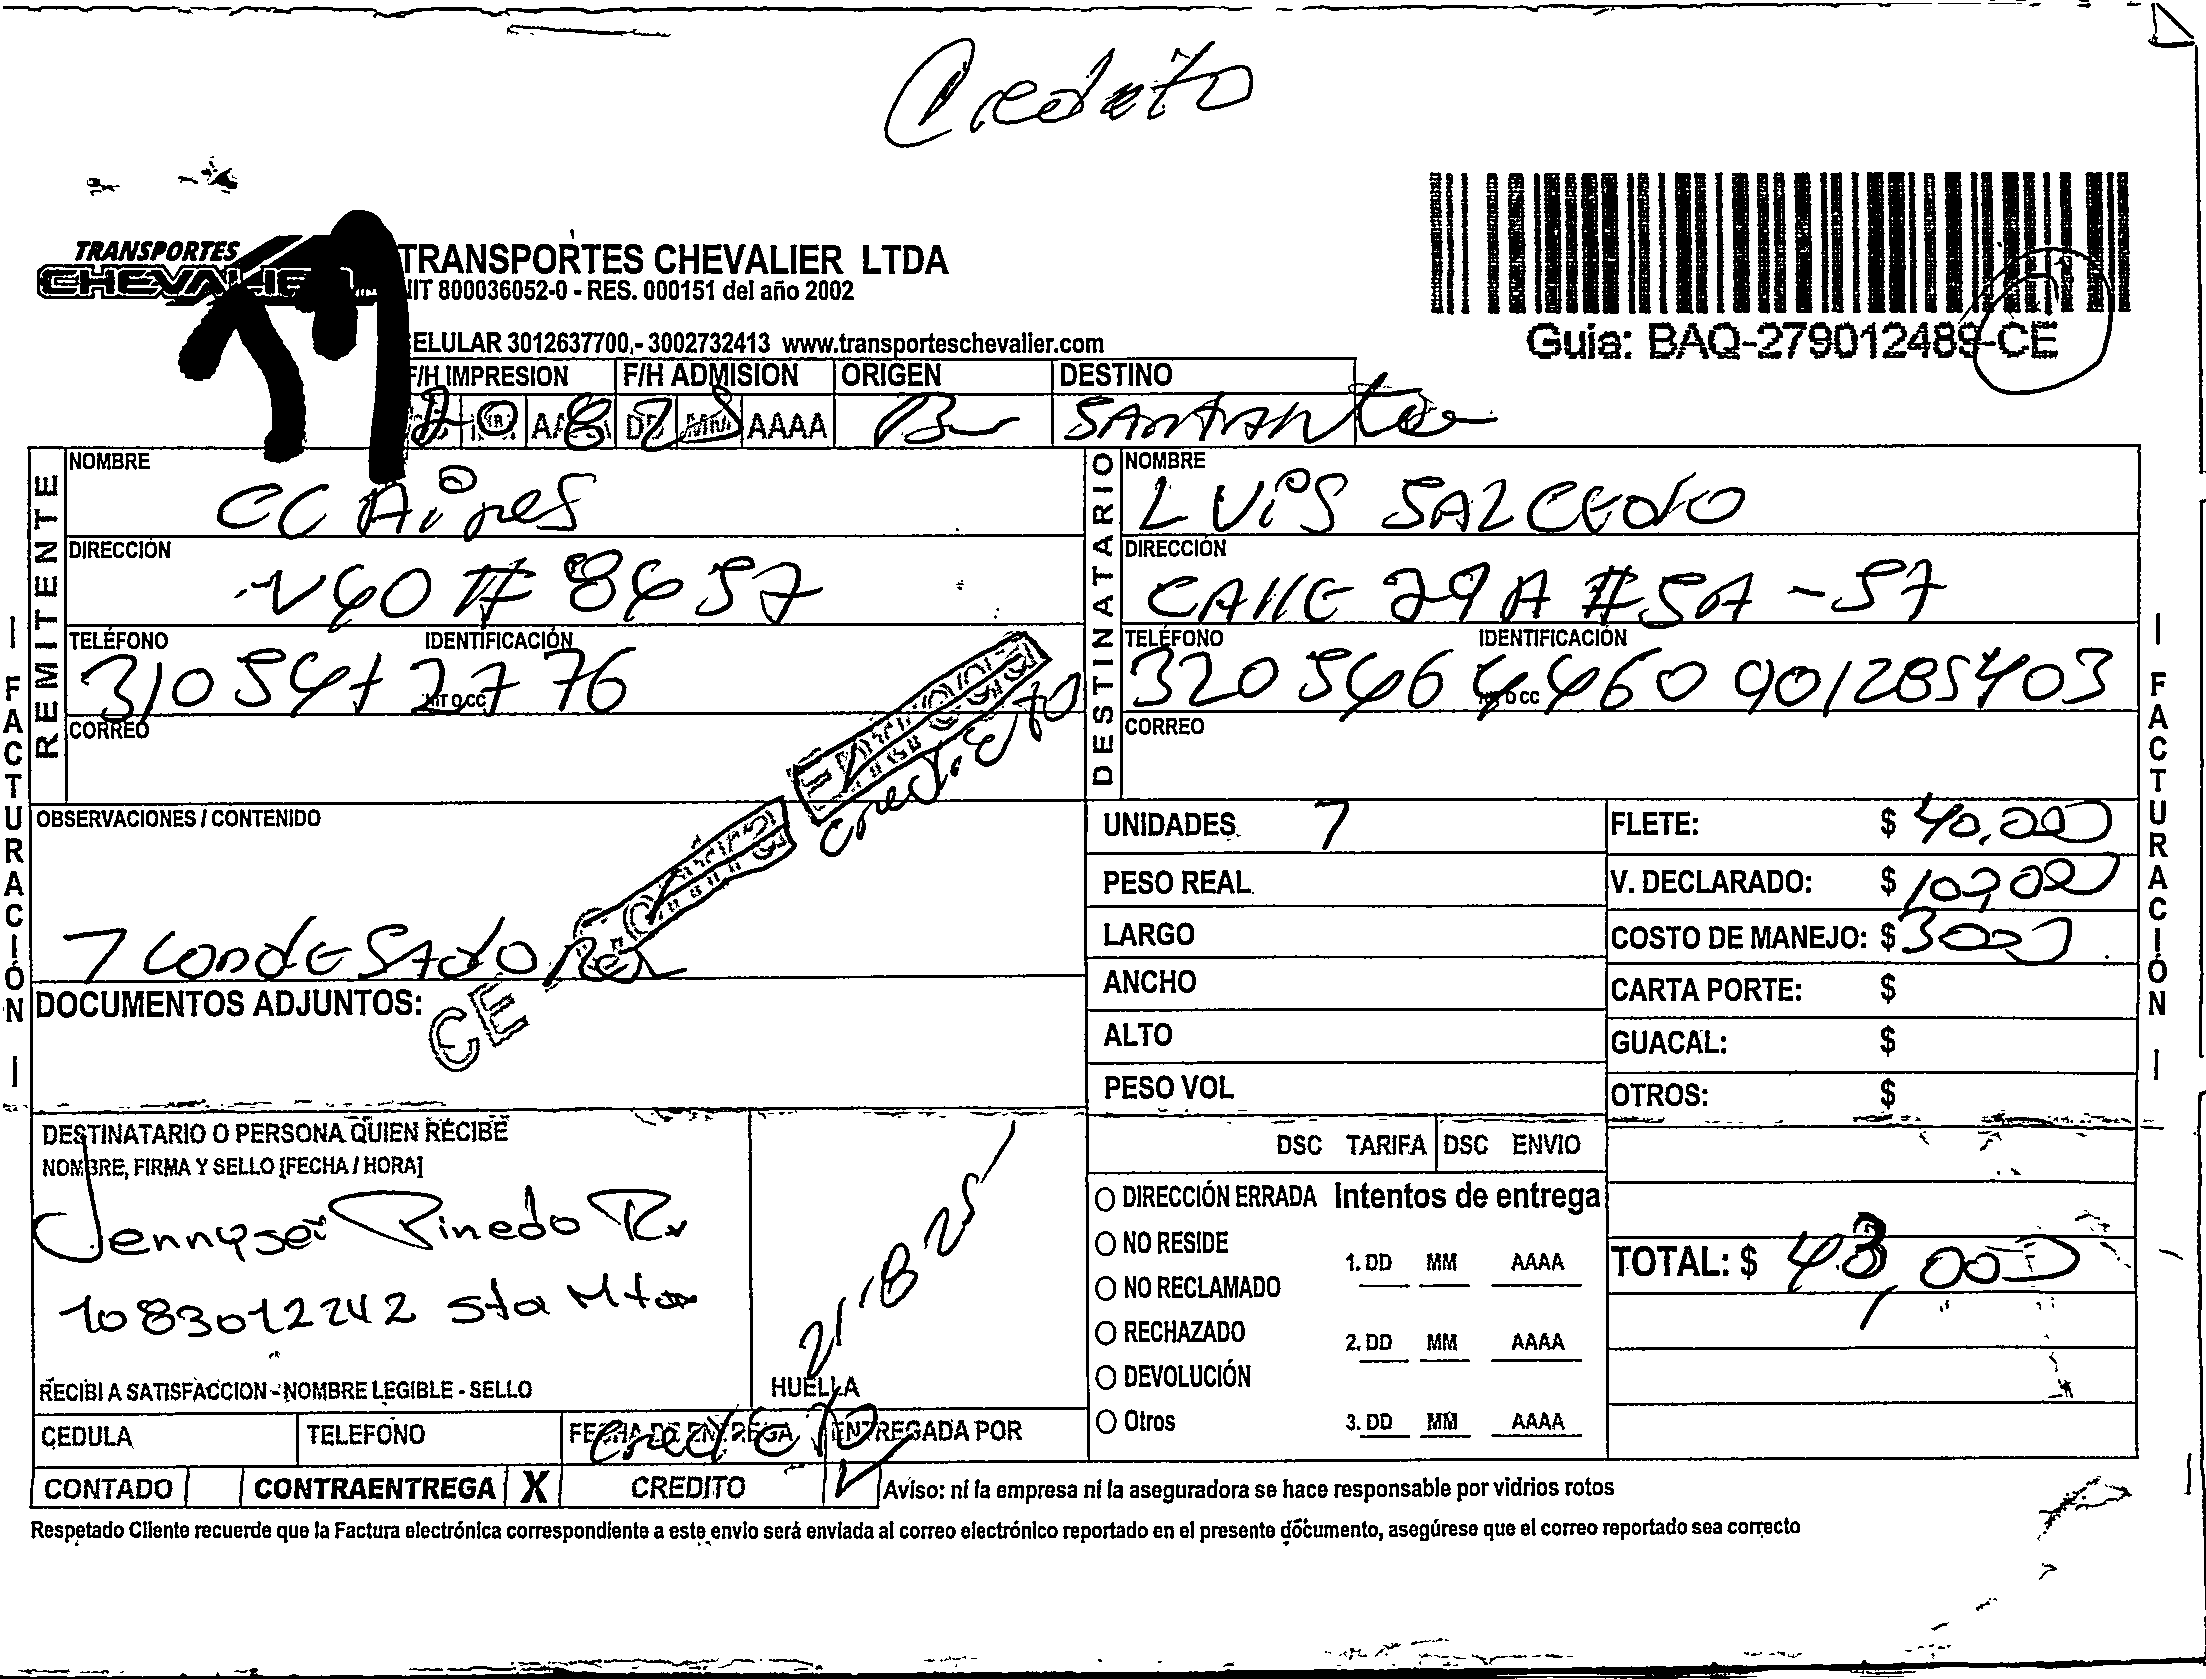 Credito
TRANSPORTES
CHEVALIER
TRANSPORTES CHEVALIER LTDA
NIT 800036052-0 - RES. 000151 del año 2002
ELULAR 3012637700,- 3002732413 www.transporteschevalier.com
Guia: BAQ-279012489-CE
F/H IMPRESION F/H ADMISION ORIGEN DESTINO
AAAA
REMITENTE
NOMBRE
CC Aires
DIRECCIÓN
TELÉFONO IDENTIFICACIÓN
310 5471 2776
NIT O CC
CORREO
DESTINATARIO
NOMBRE
LUIS SALCEDO
DIRECCIÓN
CALLE 29A #5A-57
TELÉFONO IDENTIFICACIÓN
320 546 4460 901285403
CORREO
FACTURACIÓN
FACTURACIÓN
OBSERVACIONES / CONTENIDO
credito
CE
DOCUMENTOS ADJUNTOS:
UNIDADES 7
PESO REAL
LARGO
ANCHO
ALTO
PESO VOL
FLETE: $ 40,000
V. DECLARADO: $
COSTO DE MANEJO: $ 3000
CARTA PORTE: $
GUACAL: $
OTROS: $
DSC TARIFA DSC ENVIO
DESTINATARIO O PERSONA QUIEN RECIBE
NOMBRE, FIRMA Y SELLO [FECHA / HORA]
Pinedo
1083012242 Sta Mta
21-8-25
RECIBI A SATISFACCION - NOMBRE LEGIBLE - SELLO
HUELLA
DIRECCIÓN ERRADA Intentos de entrega
NO RESIDE
1. DD MM AAAA
NO RECLAMADO
RECHAZADO
2. DD MM AAAA
DEVOLUCIÓN
Otros 3. DD MM AAAA
TOTAL: $ 43,000
CEDULA TELEFONO FECHA DE ENTREGA ENTREGADA POR
credito
CONTADO CONTRAENTREGA X CREDITO
Aviso: ni la empresa ni la aseguradora se hace responsable por vidrios rotos
Respetado Cliente recuerde que la Factura electrónica correspondiente a este envio será enviada al correo electrónico reportado en el presente documento, asegúrese que el correo reportado sea correcto